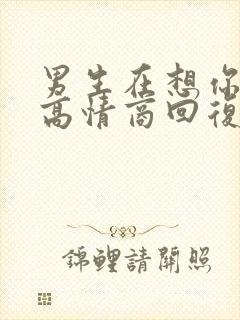 男生在想你
高情商回復
錦鯉請關照